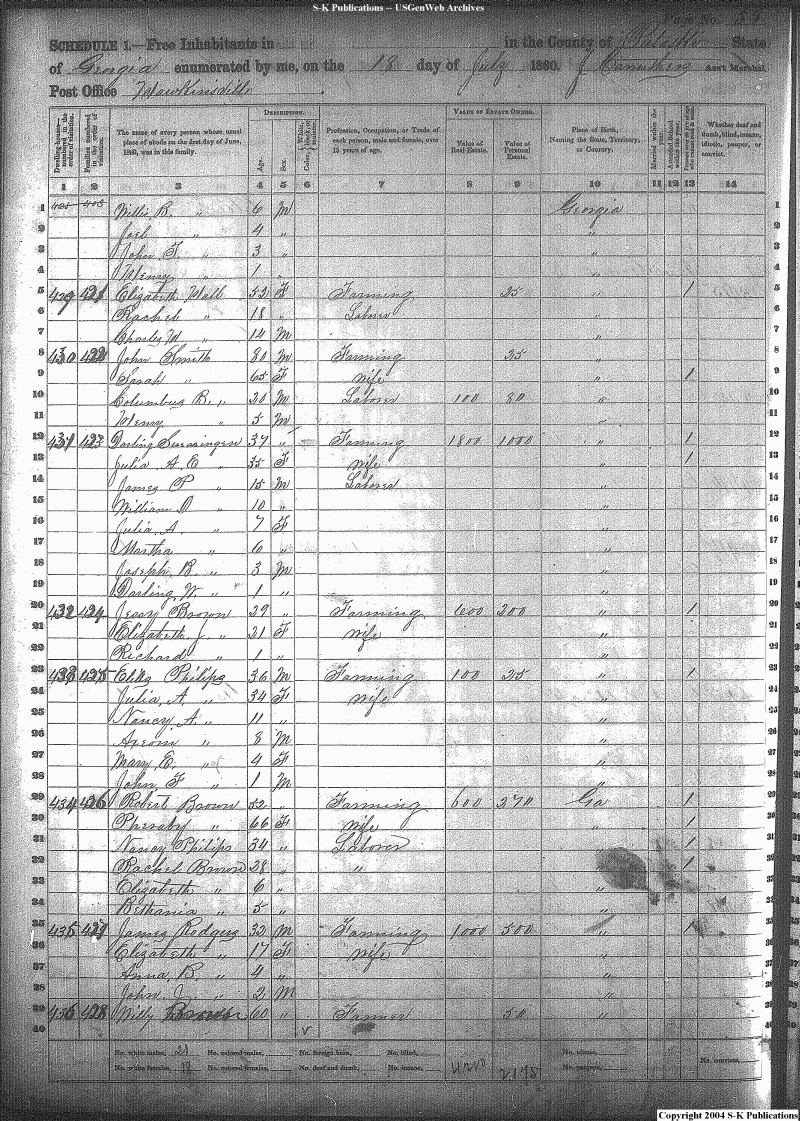 S-K Publications -- USGenWeb Archives
Page No.
SCHEDULE 1.—Free Inhabitants in in the County of Pulaski State
of Georgia enumerated by me, on the 18 day of July 1860. Ass't Marshal.
Post Office Hawkinsville
Dwelling-houses— numbered in the order of visitation.
Families numbered in the order of visitation.
The name of every person whose usual place of abode on the first day of June, 1860, was in this family.
DESCRIPTION.
Age.
Sex.
Profession, Occupation, or Trade of each person, male and female, over 15 years of age.
VALUE OF ESTATE OWNED.
Value of Real Estate.
Value of Personal Estate.
Place of Birth, Naming the State, Territory, or Country.
Married within the year.
Attended School within the year.
Whether deaf and dumb, blind, insane, idiotic, pauper, or convict.
1 2 3 4 5 6 7 8 9 10 11 12 13 14
1 Willis B. " 6 M Georgia 1
2 Joel " 4 " " 2
3 John F. " 3 " " 3
4 Henry " 1 " " 4
5 429 421 Elizabeth Wall 52 F Farming 25 " 1 5
6 Rachel " 18 " Laborer 6
7 Charles W " 14 M " 7
8 430 422 John Smith 80 M Farming 25 " 8
9 Sarah " 65 F Wife " 1 9
10 Columbus B. " 20 M Laborer 100 80 " 10
11 Henry " 5 M " 11
12 431 423 Darling Swearingen 37 " Farming 1800 1000 " 1 12
13 Julia A E " 35 F Wife " 1 13
14 James P " 15 M Laborer " 14
15 William D " 10 " " 15
16 Julia A. " 7 F " 16
17 Martha " 6 " " 17
18 Joseph B. " 3 M " 18
19 Darling W. " 1 " " 19
20 432 424 Jessy Brown 29 " Farming 600 200 " 1 20
21 Elizabeth J. " 21 F Wife " 21
22 Richard " 1 " " 22
23 433 425 Philips 36 M Farming 100 25 " 1 23
24 Julia, A. " 34 F Wife " 24
25 Nancy A. " 11 " " 25
26 " 8 M " 26
27 Mary E. " 4 F " 27
28 John, F " 1 M " 28
29 434 426 Robert Brown 52 " Farming 600 270 Ga 1 29
30 Pheraby " 66 F Wife " 1 30
31 Nancy Philips 34 " Laborer 1 31
32 Rachel Brown 28 " " 1 32
33 Elizabeth " 6 " " 33
34 Bethania " 5 " " 34
35 435 427 James Rodgers 32 M Farming 1000 500 " 1 35
36 Elizabeth " 17 F Wife " 36
37 Anna B. " 4 " " 37
38 John J. " 2 M " 38
39 436 428 Willy Brown 60 " Farmer 50 " 39
40 40
No. white males, 21 No. colored males, No. foreign born, No. blind, No. idiotic,
No. white females, 18 No. colored females, No. deaf and dumb, No. insane, 4200 2175 No. paupers, No. convicts,
Copyright 2004 S-K Publications